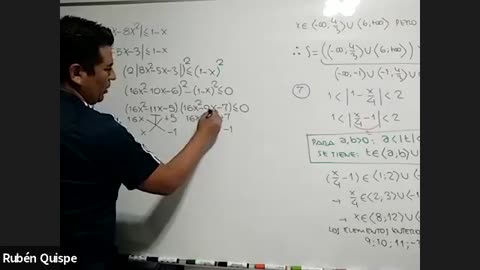 x-8x²|≤1-x
-5x-3|≤1-x
(2|8x²-5x-3|)²≤(1-x)²
(16x²-10x-6)²-(1-x)²≤0
(16x²-11x-5)(16x²-9x-7)≤0
16x +5 16x 7
x -1 -1
x∈(-∞,4/3)∪(6,+∞) PERO
∴ S=((-∞,4/3)∪(6,+∞))
7
1<|1-x/4|<2
1<|x/4-1|<2
PARA a,b>0: a<|t|<
SE TIENE: t∈(a,b)∪
(x/4-1)∈(1;2)∪(-
→ x/4∈(2,3)∪(-
→ x∈(8;12)∪(-
LOS ELEMENTOS ENTERO
9;10;11;-
Rubén Quispe